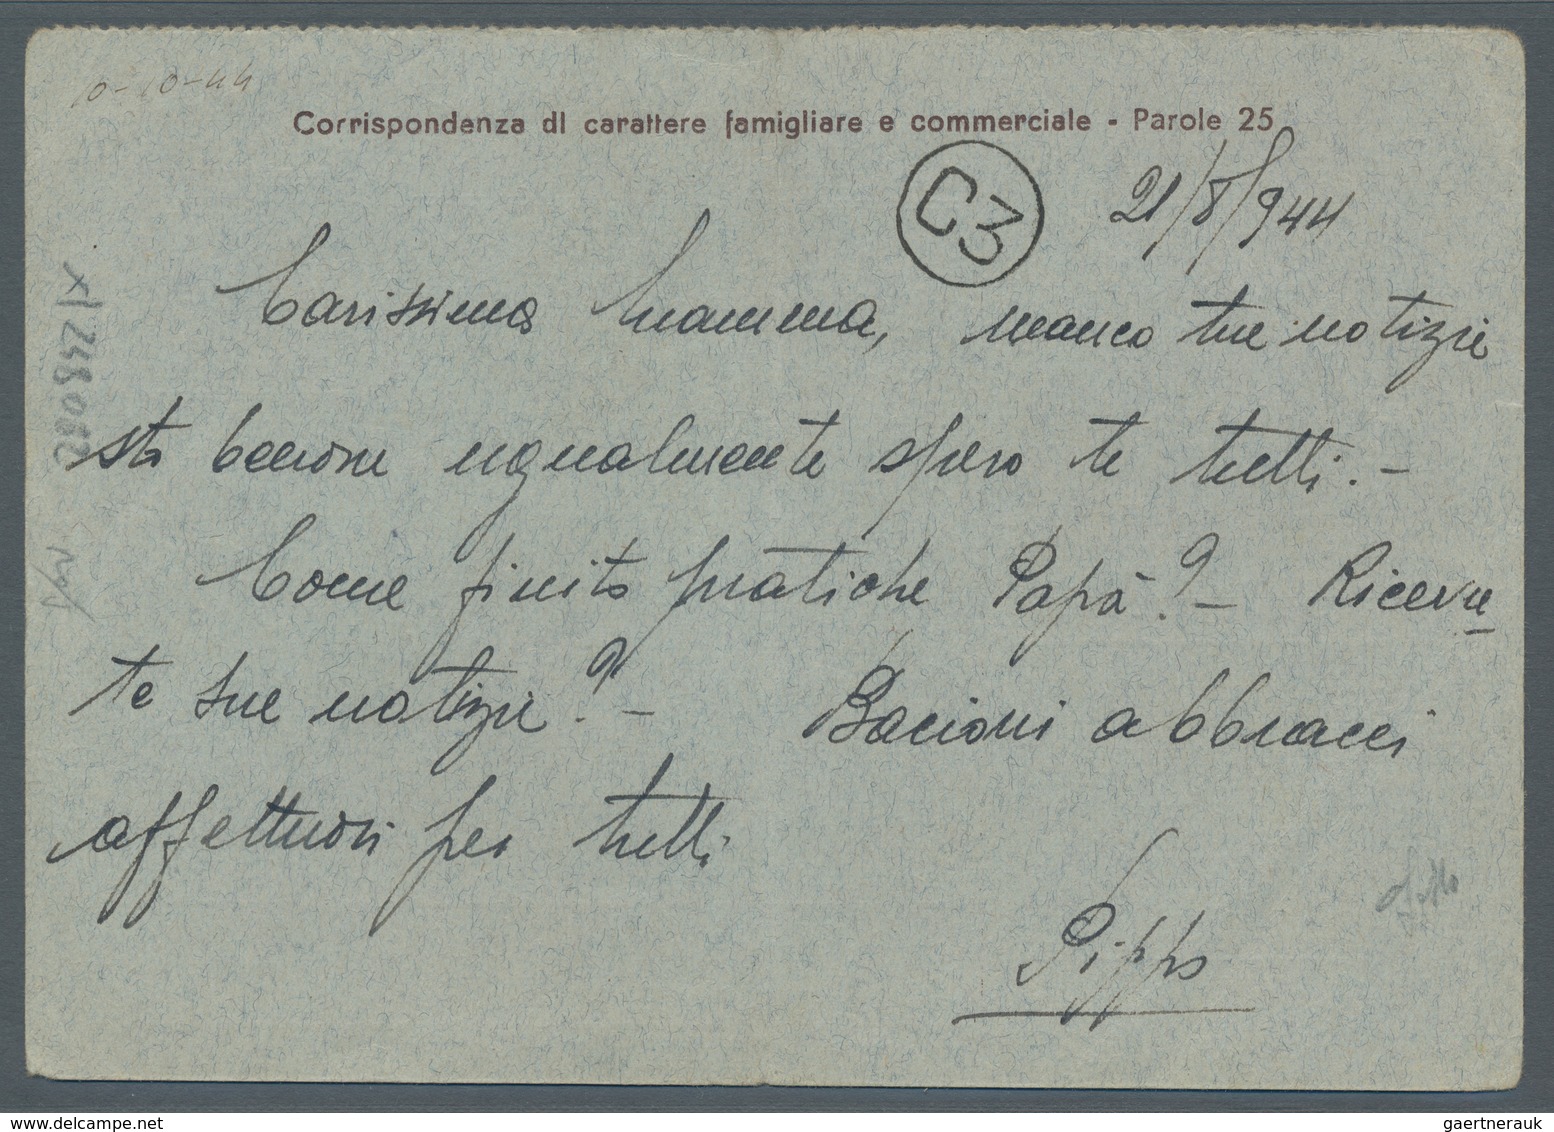 10-10-44
Corrispondenza di carattere famigliare e commerciale - Parole 25
C3
21/8/944
Carissima Mamma, manco tue notizie
sto benone ugualmente spero te tutti. -
Come finito pratiche Papà? - Ricevu
te sue notizie? - Bacioni abbracci
affettuosi per tutti
Pippo
x/248082
gaertnerauk@delcampe.net